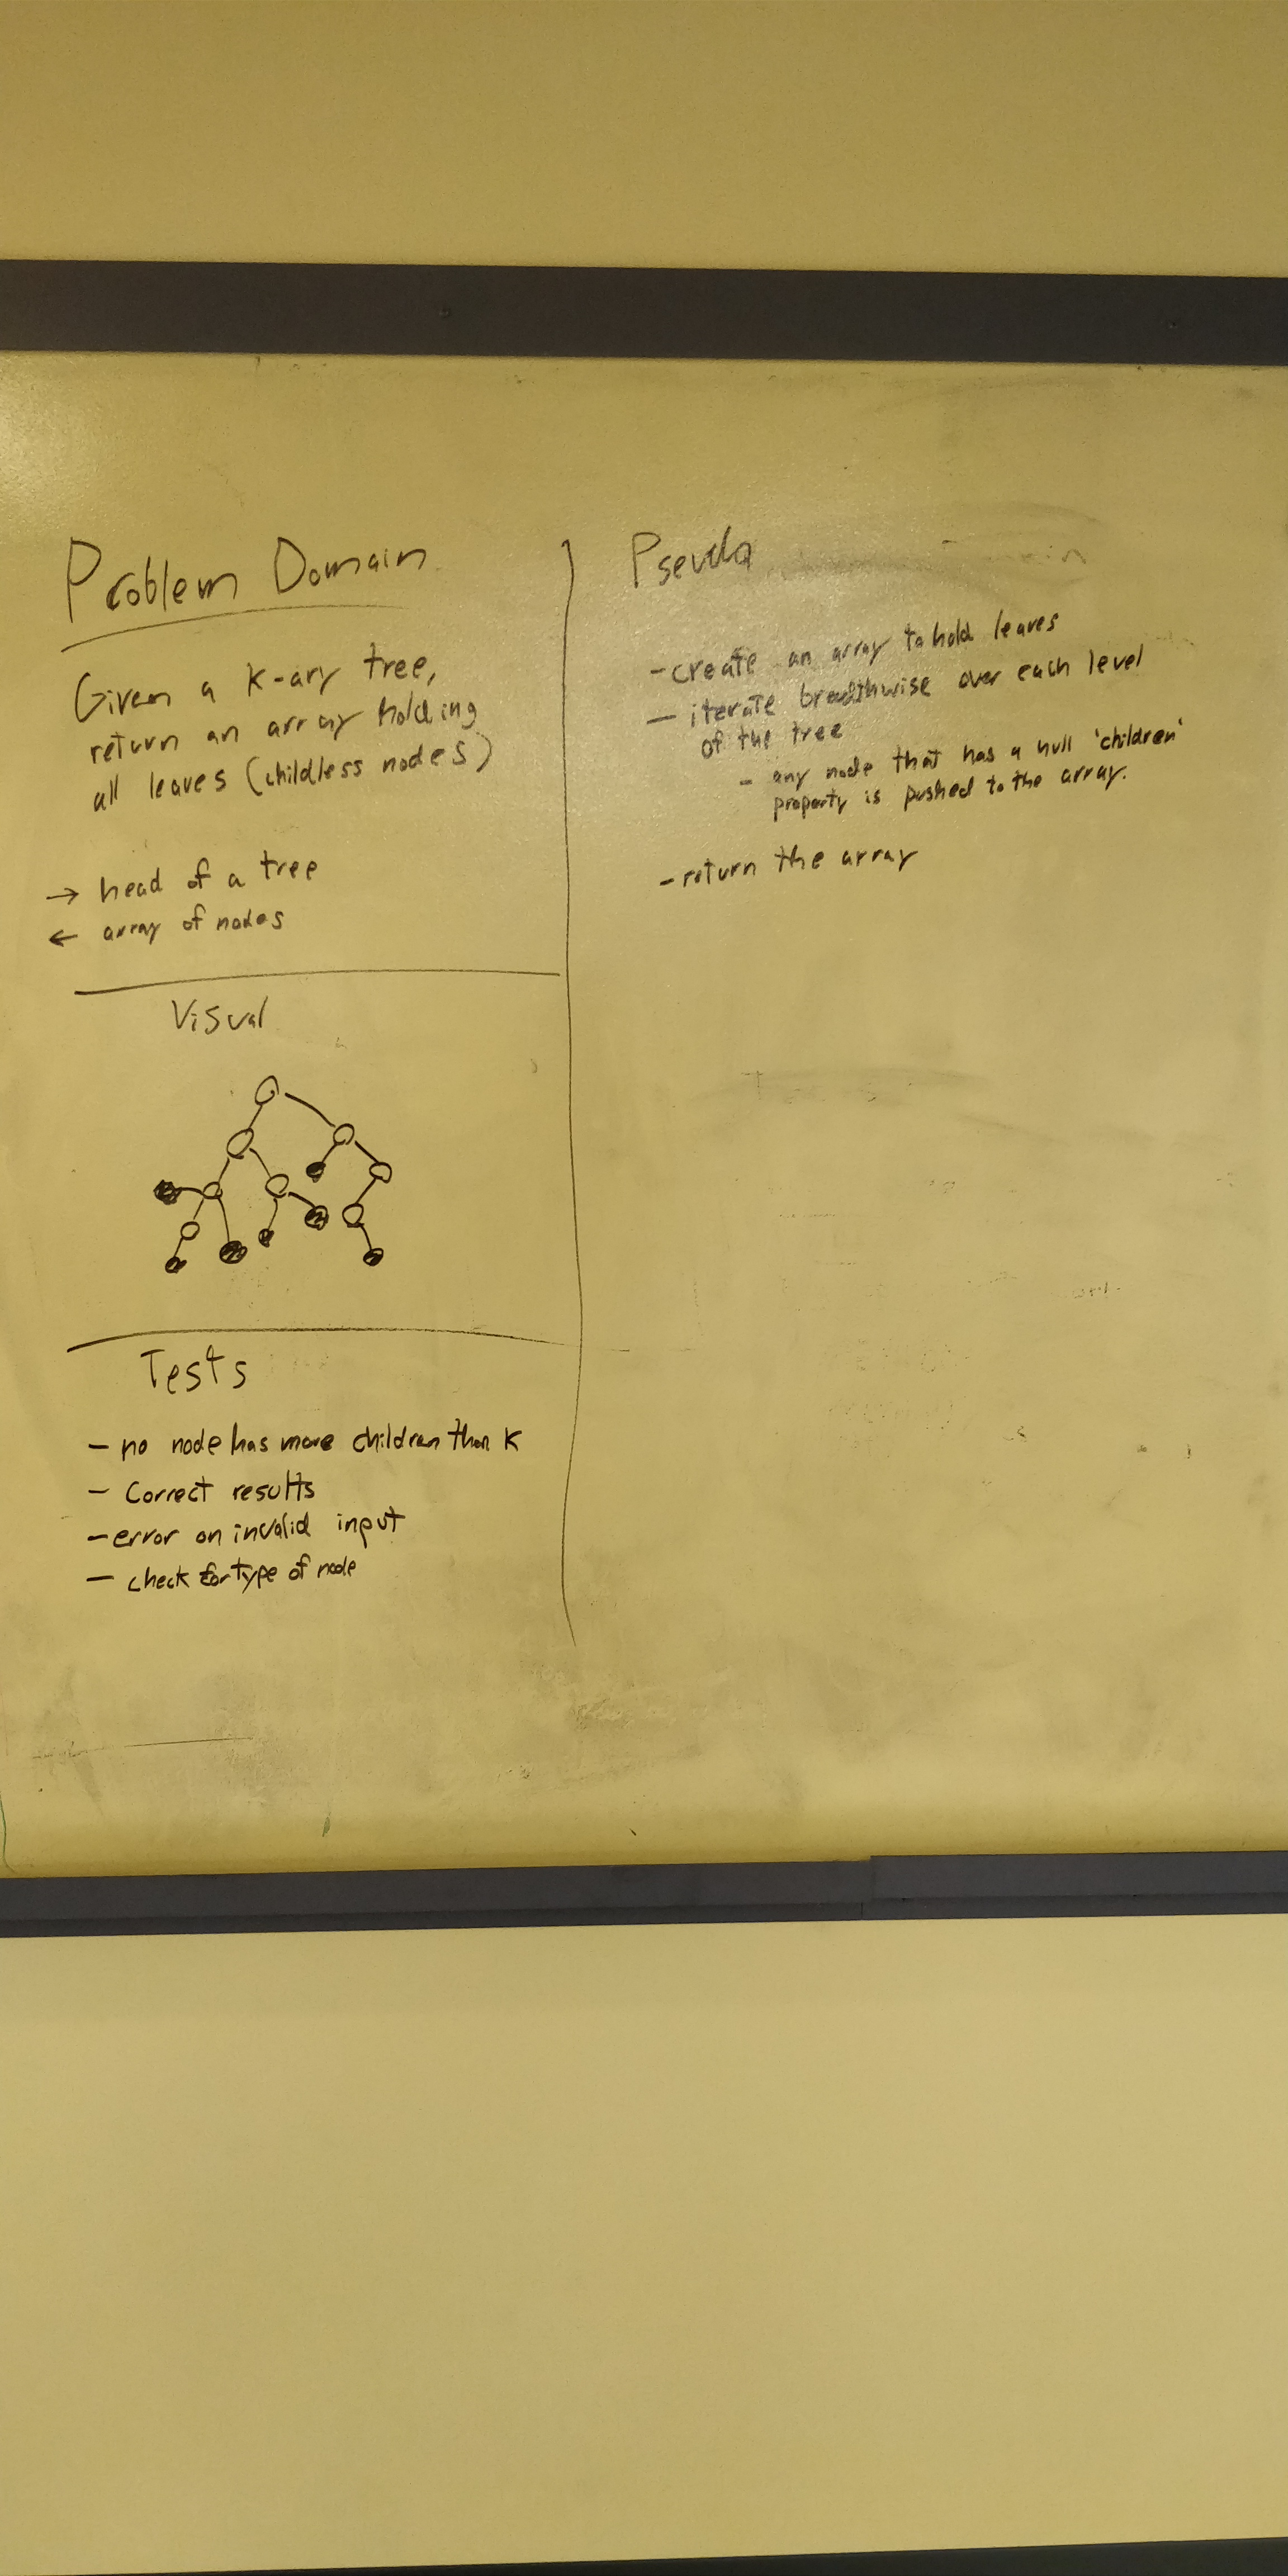 Problem Domain
Given a K-ary tree,
return an array holding
all leaves (childless nodes)
→ head of a tree
← array of nodes
Visual
Tests
- no node has more children than K
- Correct results
- error on invalid input
- check for type of node
Pseudo
- create an array to hold leaves
- iterate breadthwise over each level
of the tree
- any node that has a null 'children'
property is pushed to the array.
- return the array